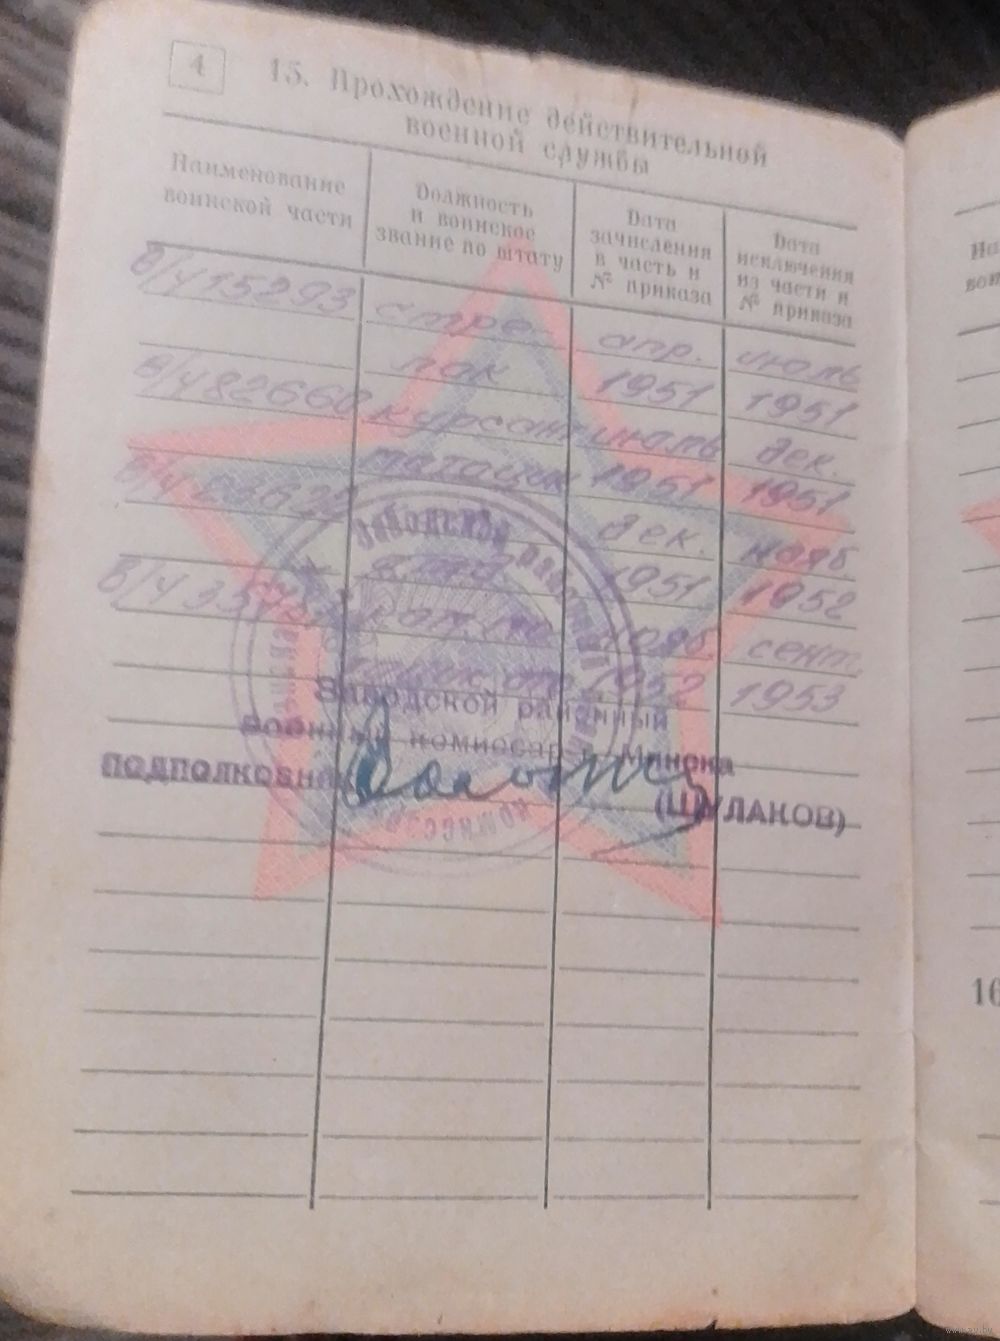 4
15. Прохождение действительной
военной службы
Наименование
воинской части
Должность
и воинское
звание по штату
Дата
зачисления
в часть и
№ приказа
Дата
исключения
из части и
№ приказа
В/Ч 15293 стре апр. июль
лок 1951 1951
В/Ч 82660 курсант июль дек.
1951 1951
В/Ч дек. нояб.
1951 1952
В/Ч нояб сент
1952 1953
Заводской районный
военный комиссар г. Минска
подполковник
(ШУЛАКОВ)
На
вои
16